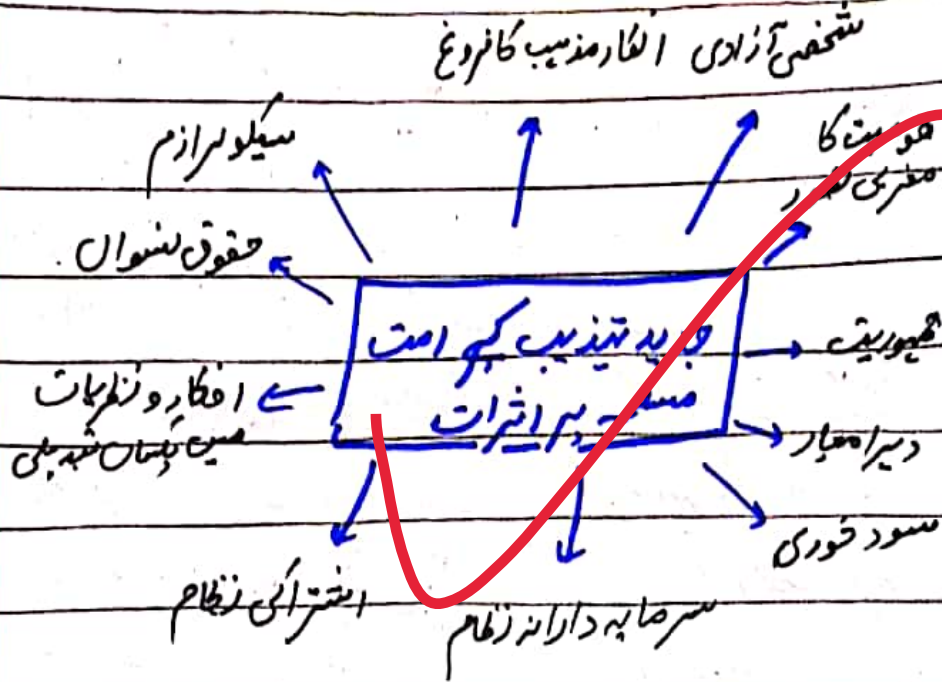 شخصی آزادی
انکار مذہب کا فروغ
سیکولرازم
حقوق نسواں
حوریت کا
مغربی تصور
جدید تہذیب کے امت
مسلمہ پر اثرات
جمہوریت
افکار و نظریات
میں یکساں تبدیلی
دہرا معیار
سود خوری
اشتراکی نظام
سرمایہ دارانہ نظام